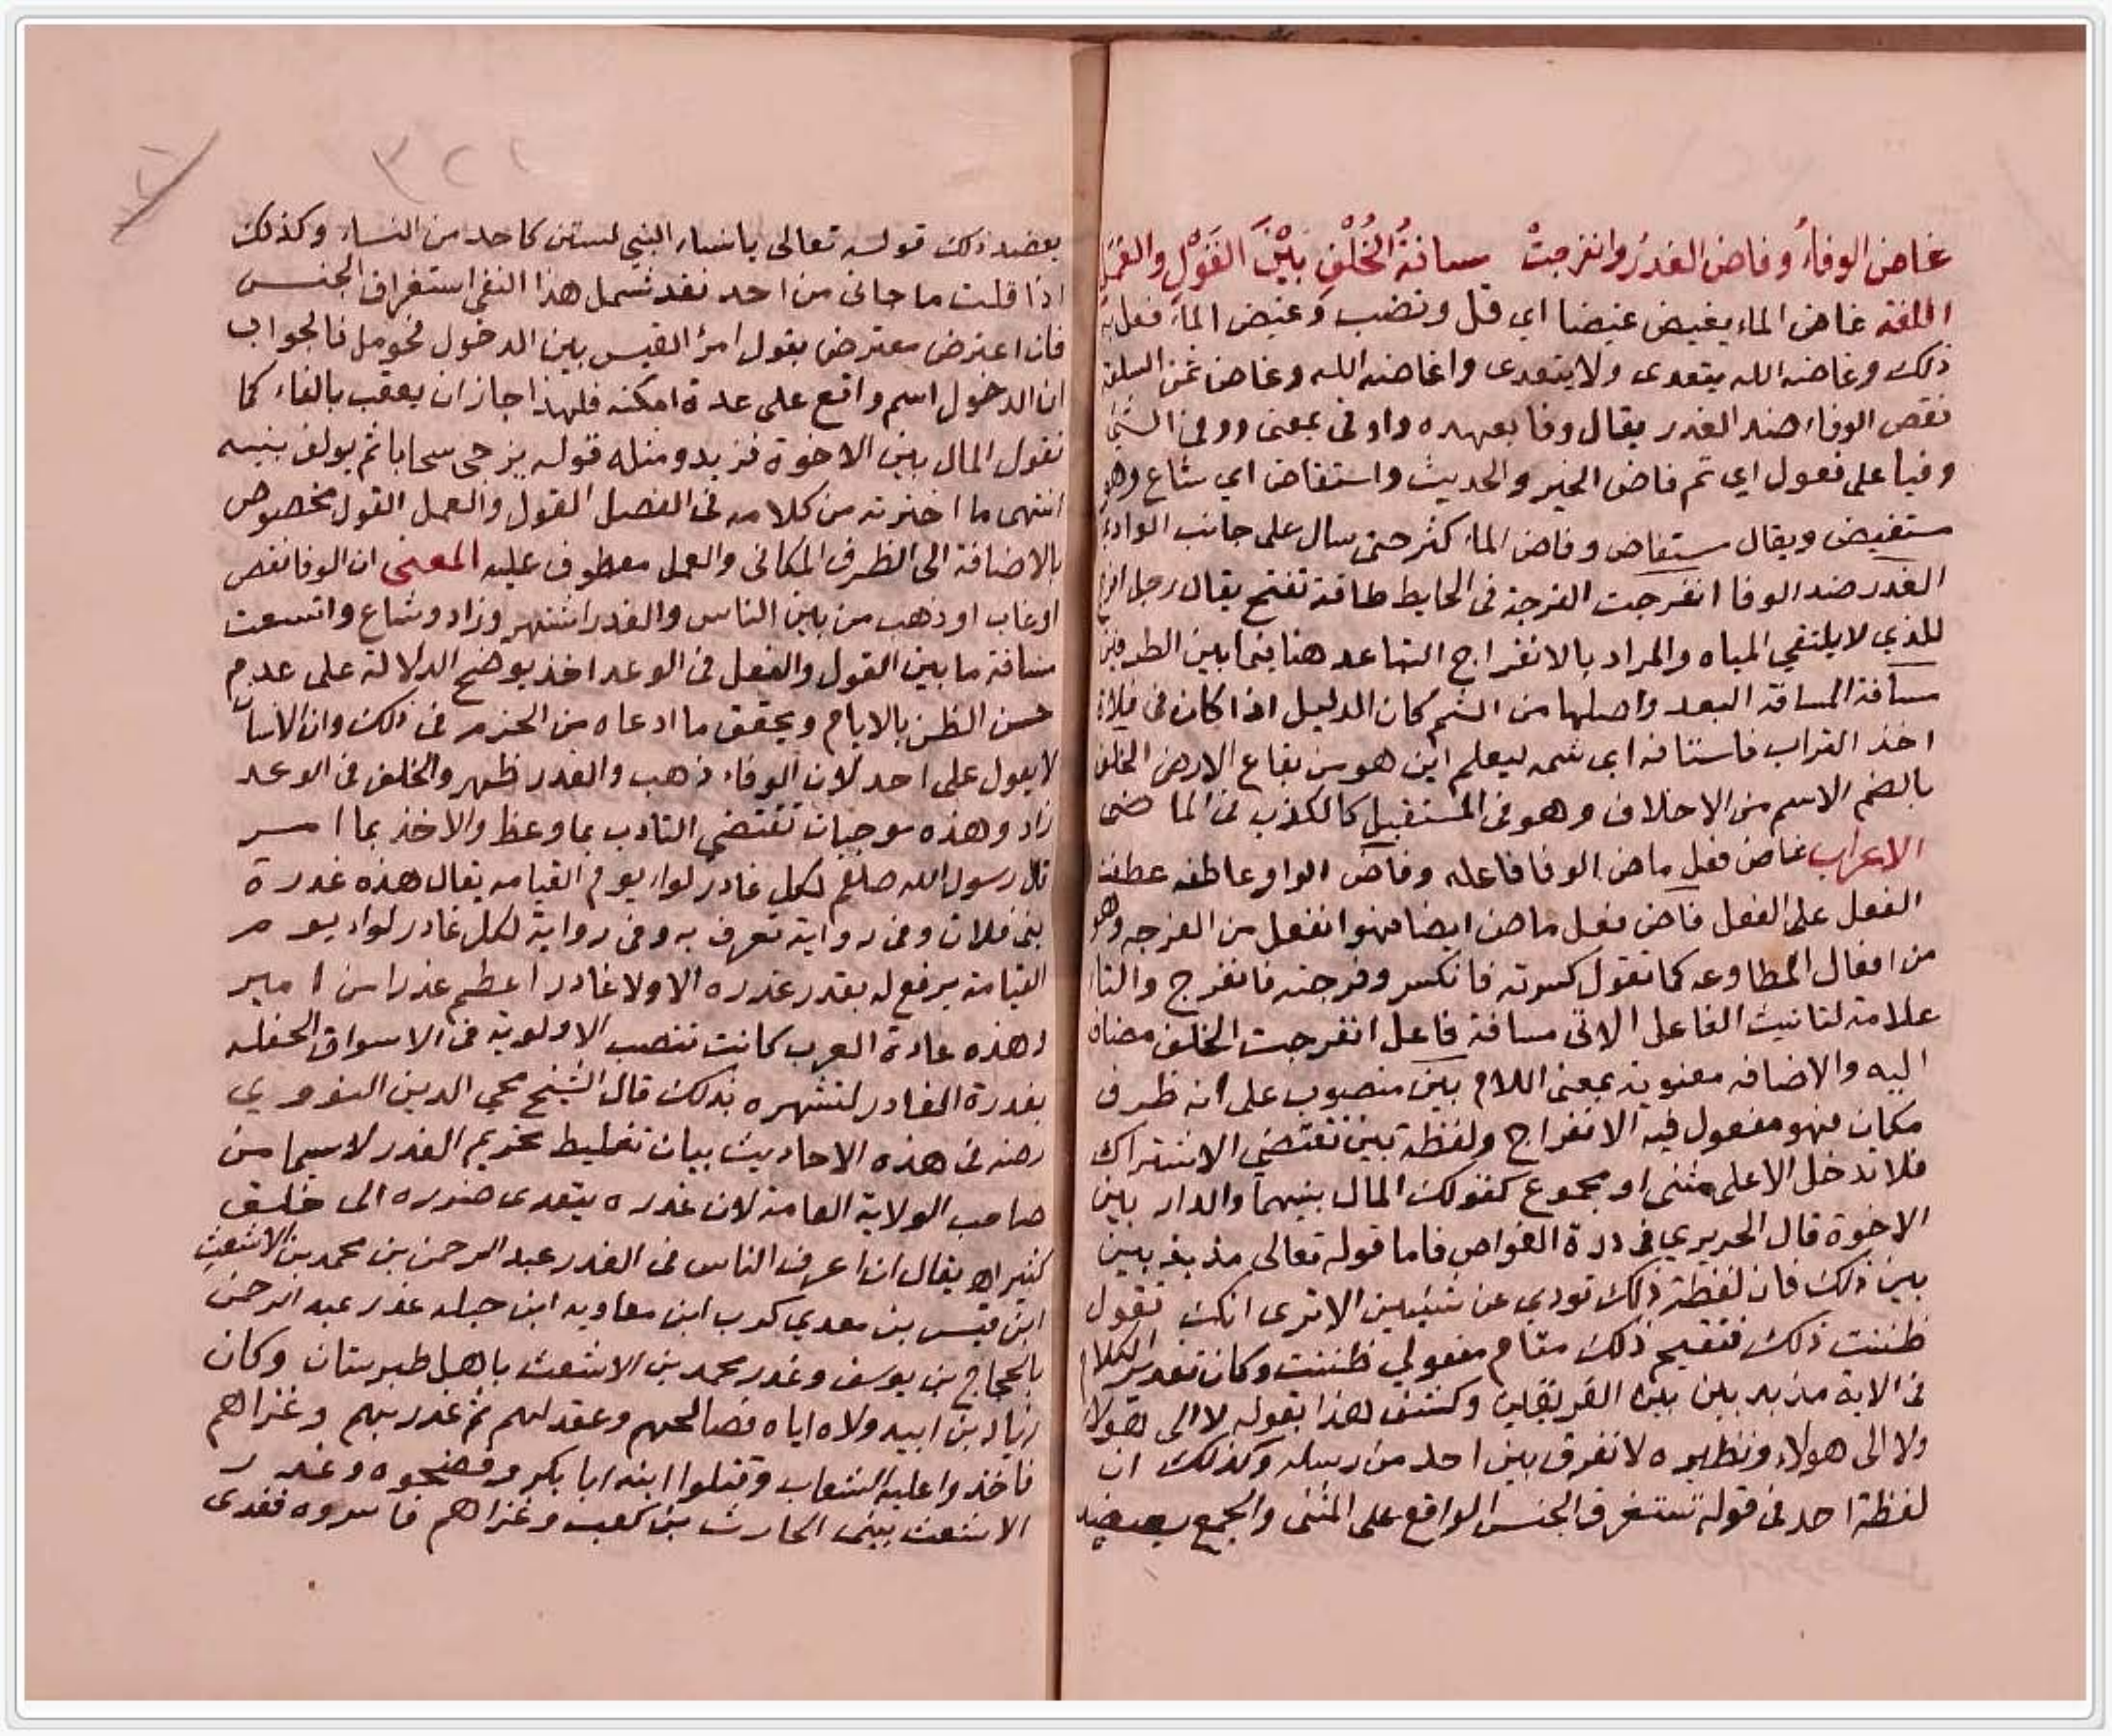 غاض الوفاءُ وفاض الغدرُ وانفرجتْ مسافةُ الخُلْفِ بَيْنَ القَوْلِ والعَمَلِ
اللغة غاض الماء يغيض غيضا اي قل ونضب وغيض الماء فعل به
ذلك وغاضه الله يتعدى ولا يتعدى واغاضه الله وغاض ثمن السلعة
نقص الوفاء ضد الغدر يقال وفا بعهده واوفى بمعنى ووفى الشي
وفيا على فعول اي تم فاض الخبر والحديث واستفاض اي شاع وهو
مستفيض ويقال مستفاض وفاض الماء كثر حتى سال على جانب الوادي
الغدر ضد الوفا انفرجت الفرجة فى الحايط طاقة تفتح يقال رجل افرج
للذي لا يلتقي المياه والمراد بالانفراج التباعد هنا فيما بين الطرفين
مسافة المسافة البعد واصلها من الشم كان الدليل اذا كان فى فلاة
اخذ التراب فاستافه اي شمه ليعلم اين هو من بقاع الارض الخلف
بالضم الاسم من الاخلاف وهو فى المستقبل كالكذب فى الماضى
الاعراب غاض فعل ماض الوفا فاعله وفاض الواو عاطفه عطفت
الفعل على الفعل فاض فعل ماض ايضا فهو انفعل من الفرجه وهو
من افعال المطاوعه كما تقول كسرته فانكسر وفرجته فانفرج والتا
علامة لتانيث الفاعل الاتى مسافة فاعل انفرجت الخلف مضاف
اليه والاضافه معنوية بمعنى اللام بين منصوب على انه ظرف
مكان فهو مفعول فيه الانفراج ولفظة بين تقتضي الاشتراك
فلا تدخل الا على مثنى او مجموع كقولك المال بينهما والدار بين
الاخوة قال الحريري فى درة الغواص فاما قوله تعالى مذبذبين
بين ذلك فان لفظة ذلك تودي عن شيئين الا ترى انك تقول
ظننت ذلك فتقيم ذلك مقام مفعولي ظننت وكان تقدير الكلام
فى الاية مذبذبين بين الفريقين وكشف هذا بقوله لا الى هولاء
ولا الى هولاء ونظيره لا نفرق بين احد من رسله وكذلك ان
لفظة احد فى قوله تستغرق الجنس الواقع على المثنى والجمع يعضد
٣٢١
يعضد ذلك قوله تعالى يا نساء النبي لستن كاحد من النساء وكذلك
اذا قلت ما جانى من احد فقد شمل هذا النفى استغراق الجنس
فان اعترض معترض بقول امرؤ القيس بين الدخول فحومل فالجواب
ان الدخول اسم واقع على عدة امكنه فلهذا جاز ان يعقب بالفاء كما
تقول المال بين الاخوة فزيد ومثله قوله يزجى سحابا ثم يولف بينه
انتهى ما اخترته من كلامه فى الفصل القول والعمل القول مخصوص
بالاضافة الى الظرف المكانى والعمل معطوف عليه المعنى ان الوفا نقص
او غاب او ذهب من بين الناس والغدر اشتهر وزاد وشاع واتسعت
مسافة ما بين القول والفعل فى الوعد اخذ يوضح الدلالة على عدم
حسن الظن بالايام ويحقق ما ادعاه من الحزم فى ذلك وان الانسان
لا يعول على احد لان الوفاء ذهب والغدر ظهر والخلف فى الوعد
زاد وهذه موجبات تقتضي التادب بما وعظ والاخذ بما امر
قال رسول الله صلعم لكل غادر لواء يوم القيامه يقال هذه غدرة
بنى فلان وفى رواية تعرف به وفى رواية لكل غادر لواء يوم
القيامة يرفع له بقدر غدره الا ولا غادر اعظم غدرا من امير
وهذه عادة العرب كانت تنصب الالوية فى الاسواق الحفله
بغدرة الغادر لتشهره بذلك قال الشيخ محي الدين النووي
رضه فى هذه الاحاديث بيان تغليظ تحريم الغدر لاسيما من
صاحب الولاية العامة لان غدره يتعدى ضرره الى خلق
كثير اهـ يقال ان اعرف الناس فى الغدر عبد الرحمن بن محمد بن الاشعث
ابن قيس بن معدي كرب ابن معاويه ابن جبله غدر عبد الرحمن
بالحجاج بن يوسف وغدر محمد بن الاشعث باهل طبرستان وكان
زياد بن ابيه ولاه اياه فصالحهم وعقد لهم ثم غدر بهم وغزاهم
فاخذوا عليه الشعاب وقتلوا ابنه ابا بكر وفضحوه وغدر
الاشعث ببنى الحارث بن كعب وغزاهم فاسروه ففدى